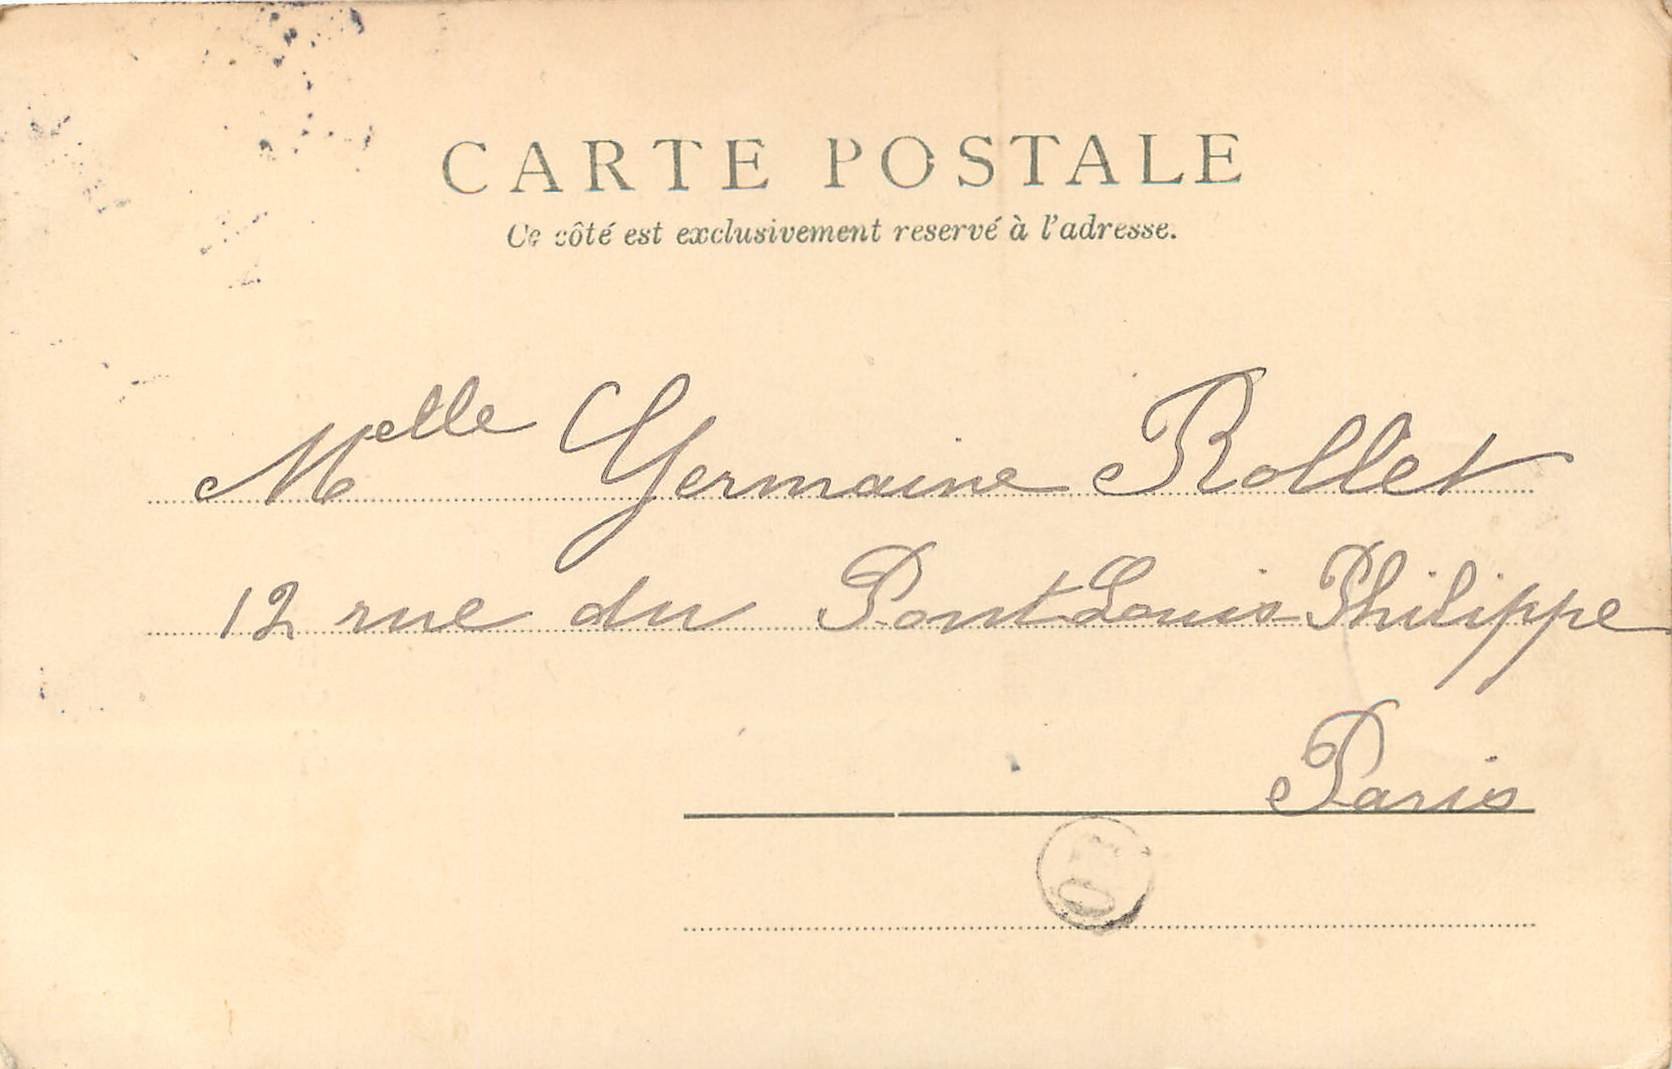 CARTE POSTALE
Ce côté est exclusivement reservé à l'adresse.
Melle Germaine Rollet
12 rue du Pont Louis Philippe
Paris